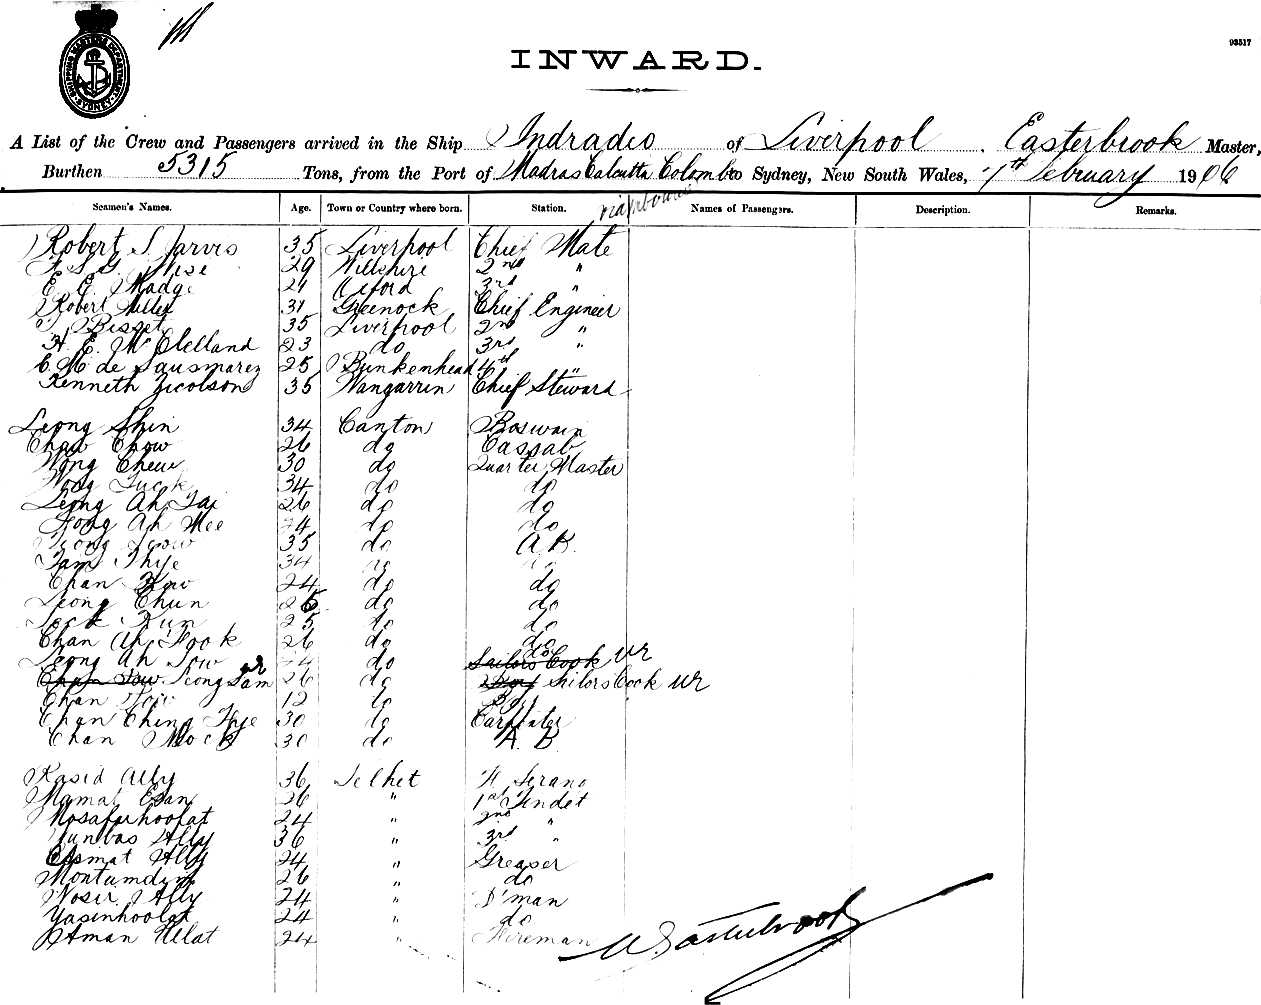 SHIPPING MASTERS DEPARTMENT SYDNEY
93517
INWARD.
A List of the Crew and Passengers arrived in the Ship Indradeo of Liverpool Easterbrook Master,
Burthen 5315 Tons, from the Port of Madras Calcutta Colombo to Sydney, New South Wales, 7th February 1906
via
Seamen's Names. Age. Town or Country where born. Station. Names of Passengers. Description. Remarks.
Robert S Jarvis 35 Liverpool Chief Mate
29 Wiltshire 2nd "
E. E. Madge 24 Oxford 3rd "
Robert Miller 31 Greenock Chief Engineer
Bisset 35 Liverpool 2nd "
H. E. McClelland 23 do 3rd "
C. M. de Sausmarez 25 4th "
Kenneth Nicolson 35 Wangarrin Chief Steward
Leong Shin 34 Canton Boswain
Chaw Chow 26 do Cassab
Wong Chew 30 do Quarter Master
Wong Tuck 34 do do
Leong Ah Tai 26 do do
Fong Ah Mee 24 do do
Leong 35 do A B.
Tam Thye 34 do do
Chan Kow 24 do do
Leong Chun 25 do do
Kum 25 do do
Chan Ah Fook 26 do do
Leong Ah Sow 24 do Sailors Cook do WR
Chan Leong Sam WR 26 do Boy Sailors Cook WR
Chan 12 do Boy
Chan Ching Hye 30 do Carpenter
Chan Mock 30 do A. B
Rasid Ally 36 Selhet Serang
Mamat Esan 26 " 1st Tindel
Mosafurhoolat 24 " 2nd "
Ally 36 " 3rd "
Ally 24 " Greaser
Montamdin 26 " do
Nosir Ally 24 " D'man
Yasinhoolat 24 " do
Aman Ullat 24 " Fireman
W Easterbrook